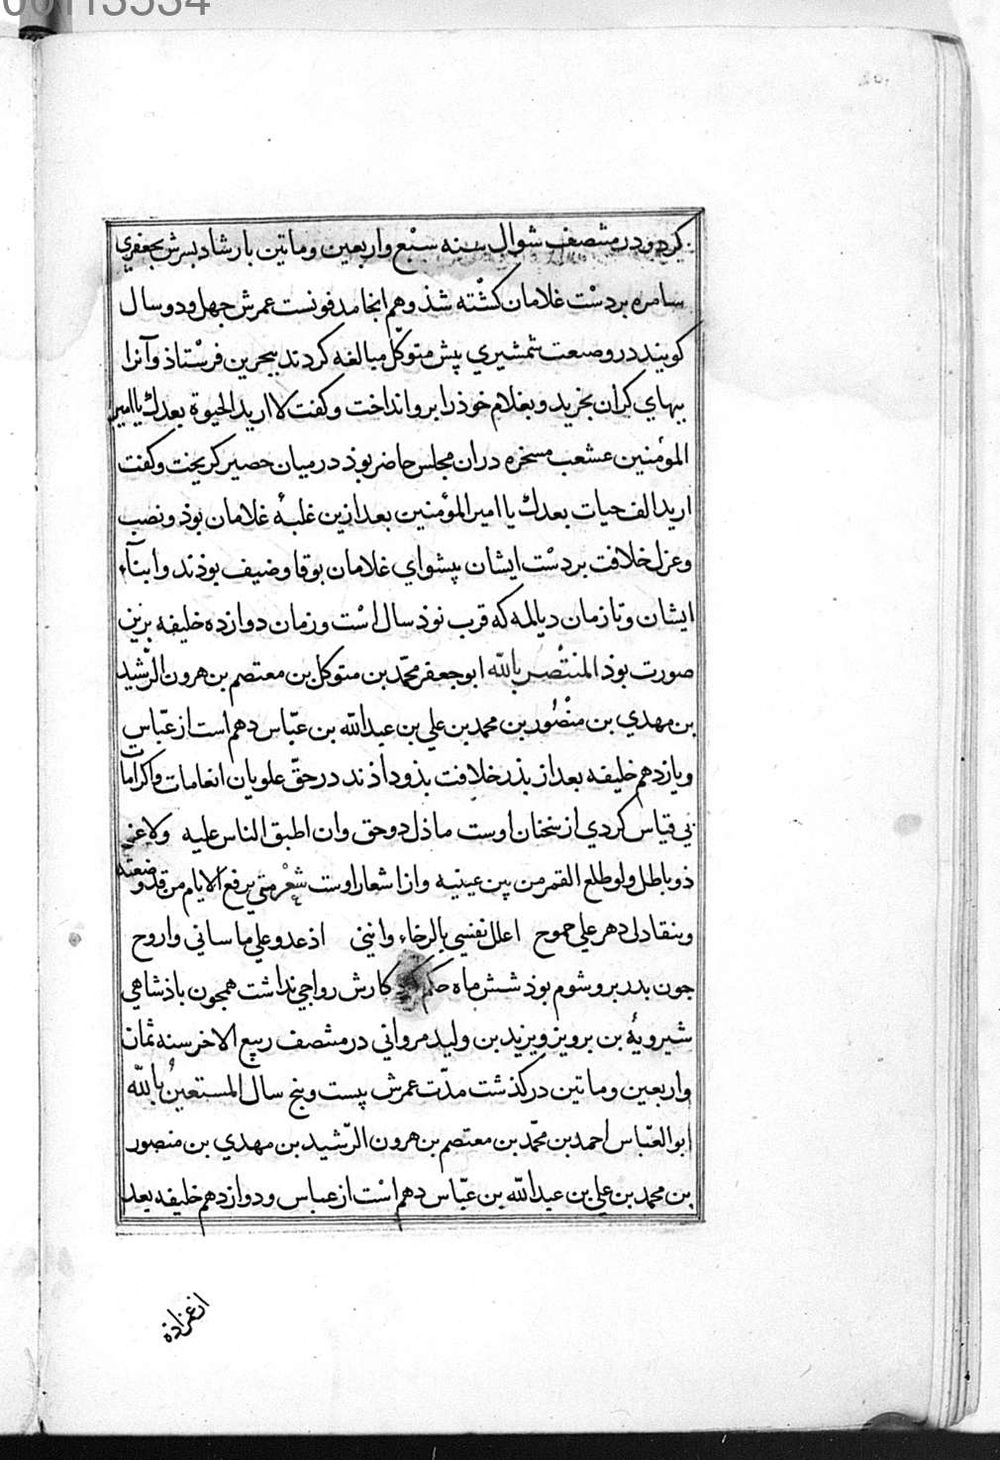 00113534
کرد و در منتصف شوال سنه سبع واربعین وماتین بارشاد پسرش بجعفری
سامره بردست غلامان کشته شذ وهم انجا مدفونست عمرش جهل ودو سال
کویند در وصفت شمشیری پیش متوکل مبالغه کردند ببحرین فرستاذ وآنرا
ببهای کران بخرید وبغلام خوذ را برو انداخت وکفت لا ارید الحیوة بعدك یا امیر
المؤمنین عشعب مسخره دران مجلس حاضر بوذ در میان حصیر کریخت وکفت
ارید الف حیات بعدك یا امیر المؤمنین بعد ازین غلبهٔ غلامان بوذ ونصب
وعزل خلافت بردست ایشان پیشوای غلامان بوقا وضیف بوذند وابنآء
ایشان وتا زمان دیالمه که قرب نوذ سال است وزمان دوازده خلیفه برین
صورت بوذ المنتصر بالله ابو جعفر محمّد بن متوکل بن معتصم بن هرون الرّشید
بن مهدي بن منصور بن محمد بن علي بن عبدالله بن عبّاس دهم است از عبّاس
ویازدهم خلیفه بعد از بذر خلافت بذو داذند در حقّ علویان انعامات واکرامات
بی قیاس کردی از سخنان اوست ما ذل دو حق وان اطبق الناس علیه ولا عز
ذو باطل ولو طلع القمر من بین عینیه وازا شعار اوست شعر متی یرفع الایام من قد وضعته
وینقاد لی دهر علی جموح اعلل نفسي بالرخاء وانني اذ عدو علی ما ساني واروح
جون بدر برو شوم بوذ شش ماه حکم کرد کارش رواجی نداشت همجون باذشاهی
شیرویهٔ بن برویز ویزید بن ولید مروانی در منتصف ربیع الاخر سنه ثمان
واربعین وماتین درکذشت مدّت عمرش بیست وبنج سال المستعین بالله
ابو العبّاس احمد بن محمّد بن معتصم بن هرون الرّشید بن مهدي بن منصور
بن محمد بن علي بن عبدالله بن عبّاس دهم است از عباس ودوازدهم خلیفه بعد
از عمزاذه